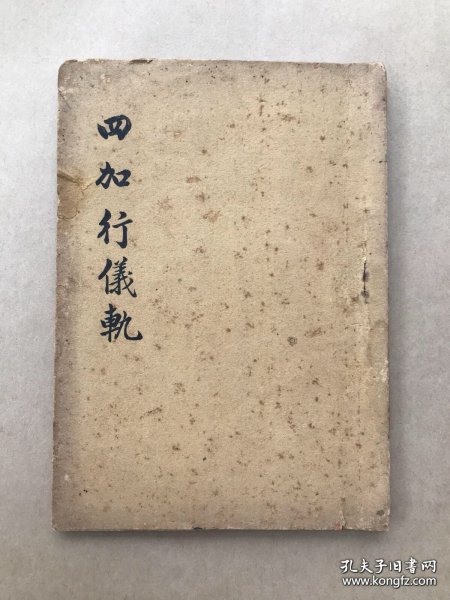 四加行儀軌
孔夫子旧书网
www.kongfz.com